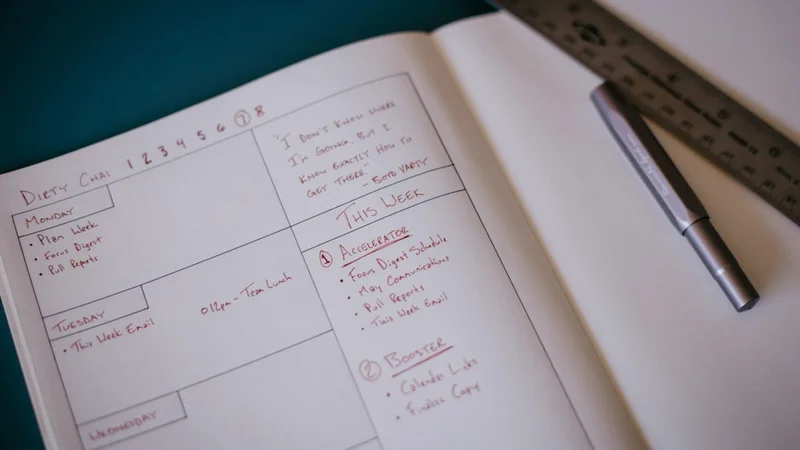 DIRTY CHAI 1 2 3 4 5 6 7 8
MONDAY
• Plan Week
• Focus Digest
• Pull Reports
TUESDAY
• This Week Email
O 12pm - Team Lunch
WEDNESDAY
"I DON'T KNOW WHERE
I'M GOING, BUT I
KNOW EXACTLY HOW TO
GET THERE."
- BOYD VARTY
THIS WEEK
1 ACCELERATOR
• Focus Digest Schedule
• May Communications
• Pull Reports
• This Week Email
2 BOOSTER
• Calendar Links
• Finalize Copy